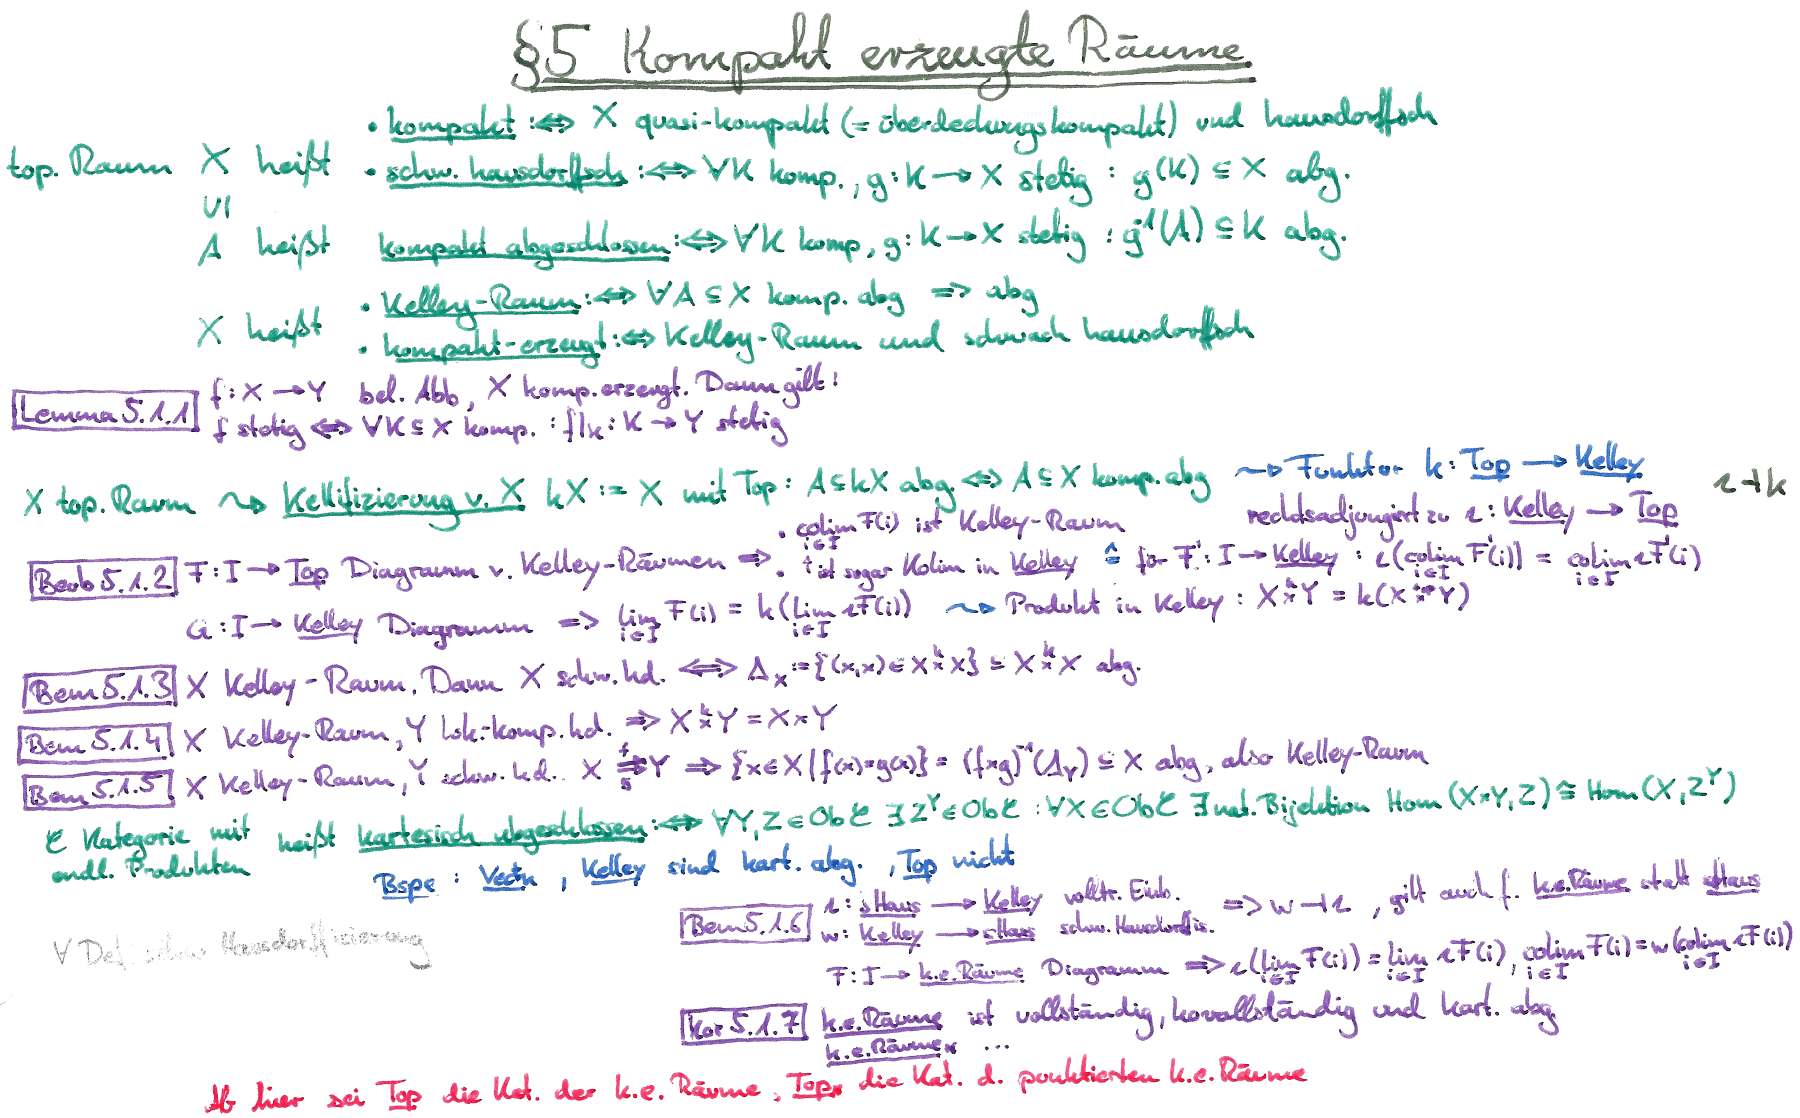 §5 Kompakt erzeugte Räume
• kompakt :⇔ X quasi-kompakt (= überdeckungskompakt) und hausdorffsch
top. Raum X heißt • schw. hausdorffsch :⇔ ∀K komp., g: K → X stetig : g(K) ⊆ X abg.
∪I
A heißt kompakt abgeschlossen :⇔ ∀K komp, g: K → X stetig : g⁻¹(A) ⊆ K abg.
• Kelley-Raum :⇔ ∀A ⊆ X komp. abg ⇒ abg
X heißt
• kompakt-erzeugt :⇔ Kelley-Raum und schwach hausdorffsch
Lemma 5.1.1 f: X → Y bel. Abb, X komp.erzeugt. Dann gilt:
f stetig ⇔ ∀K ⊆ X komp. : f|ₖ : K → Y stetig
X top. Raum ⇝ Kellifizierung v. X kX := X mit Top: A ⊆ kX abg ⇔ A ⊆ X komp. abg ⇝ Funktor k: Top → Kelley ι ⊣ k
rechtsadjungiert zu ι: Kelley → Top
Beob 5.1.2 F: I → Top Diagramm v. Kelley-Räumen ⇒ • colim_{i∈I} F(i) ist Kelley-Raum
• ↑ ist sogar Kolim in Kelley ≙ für F': I → Kelley : ι(colim_{i∈I} F'(i)) = colim_{i∈I} ιF'(i)
G: I → Kelley Diagramm ⇒ lim_{i∈I} F(i) = k(lim_{i∈I} ιF(i)) ⇝ Produkt in Kelley : X ×ᵏ Y = k(X ×ᵗᵒᵖ Y)
Bem 5.1.3 X Kelley-Raum. Dann X schw. hd. ⇔ Δₓ := {(x,x) ∈ X ×ᵏ X} ⊆ X ×ᵏ X abg.
Bem 5.1.4 X Kelley-Raum, Y lok.-komp. hd. ⇒ X ×ᵏ Y = X × Y
Bem 5.1.5 X Kelley-Raum, Y schw. hd.. X ⇉ᶠ_g Y ⇒ {x ∈ X | f(x)=g(x)} = (f×g)⁻¹(Δ_Y) ⊆ X abg, also Kelley-Raum
𝒞 Kategorie mit endl. Produkten heißt kartesisch abgeschlossen :⇔ ∀Y, Z ∈ Ob 𝒞 ∃ Z^Y ∈ Ob 𝒞 : ∀X ∈ Ob 𝒞 ∃ nat. Bijektion Hom(X×Y, Z) ≅ Hom(X, Z^Y)
Bspe : Vectₖ , Kelley sind kart. abg. , Top nicht
Bem 5.1.6 ι: sHaus → Kelley volltr. Einb.
w: Kelley → sHaus schw. Hausdorffis. ⇒ w ⊣ ι , gilt auch f. k.e.Räume statt sHaus
∀ Def: schw Hausdorffizierung
F: I → k.e.Räume Diagramm ⇒ ι(lim_{i∈I} F(i)) = lim_{i∈I} ιF(i), colim_{i∈I} F(i) = w(colim_{i∈I} ιF(i))
Kor 5.1.7 k.e.Räume ist vollständig, kovollständig und kart. abg
k.e.Räume* ...
Ab hier sei Top die Kat. der k.e. Räume, Top* die Kat. d. punktierten k.e. Räume